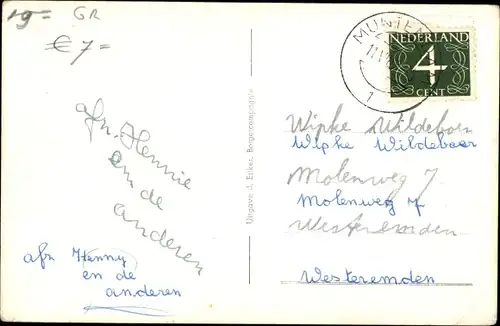 19=
GR
€ 7=
afn. Hennie
en de
anderen
afn Henny
en de
anderen
Uitgave J. Bilker, Borgercompagnie
MUNTEN
NEDERLAND
4
CENT
Wipke Wildeboer
Wipke Wildeboer
Molenweg 7
Molenweg 7
Westeremden
Westeremden